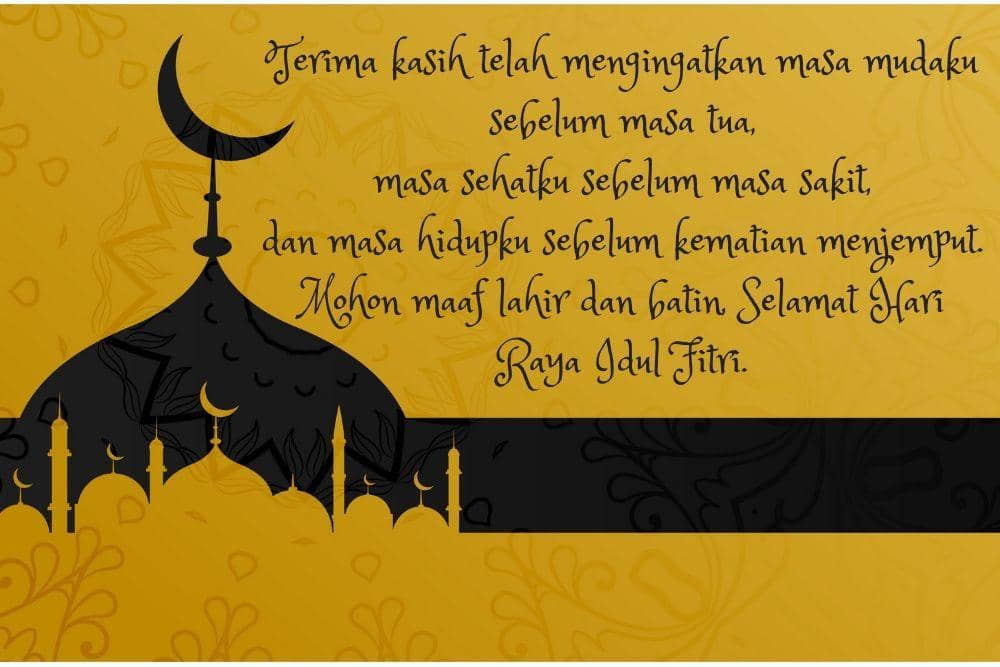 Terima kasih telah mengingatkan masa mudaku
sebelum masa tua,
masa sehatku sebelum masa sakit,
dan masa hidupku sebelum kematian menjemput.
Mohon maaf lahir dan batin, Selamat Hari
Raya Idul Fitri.